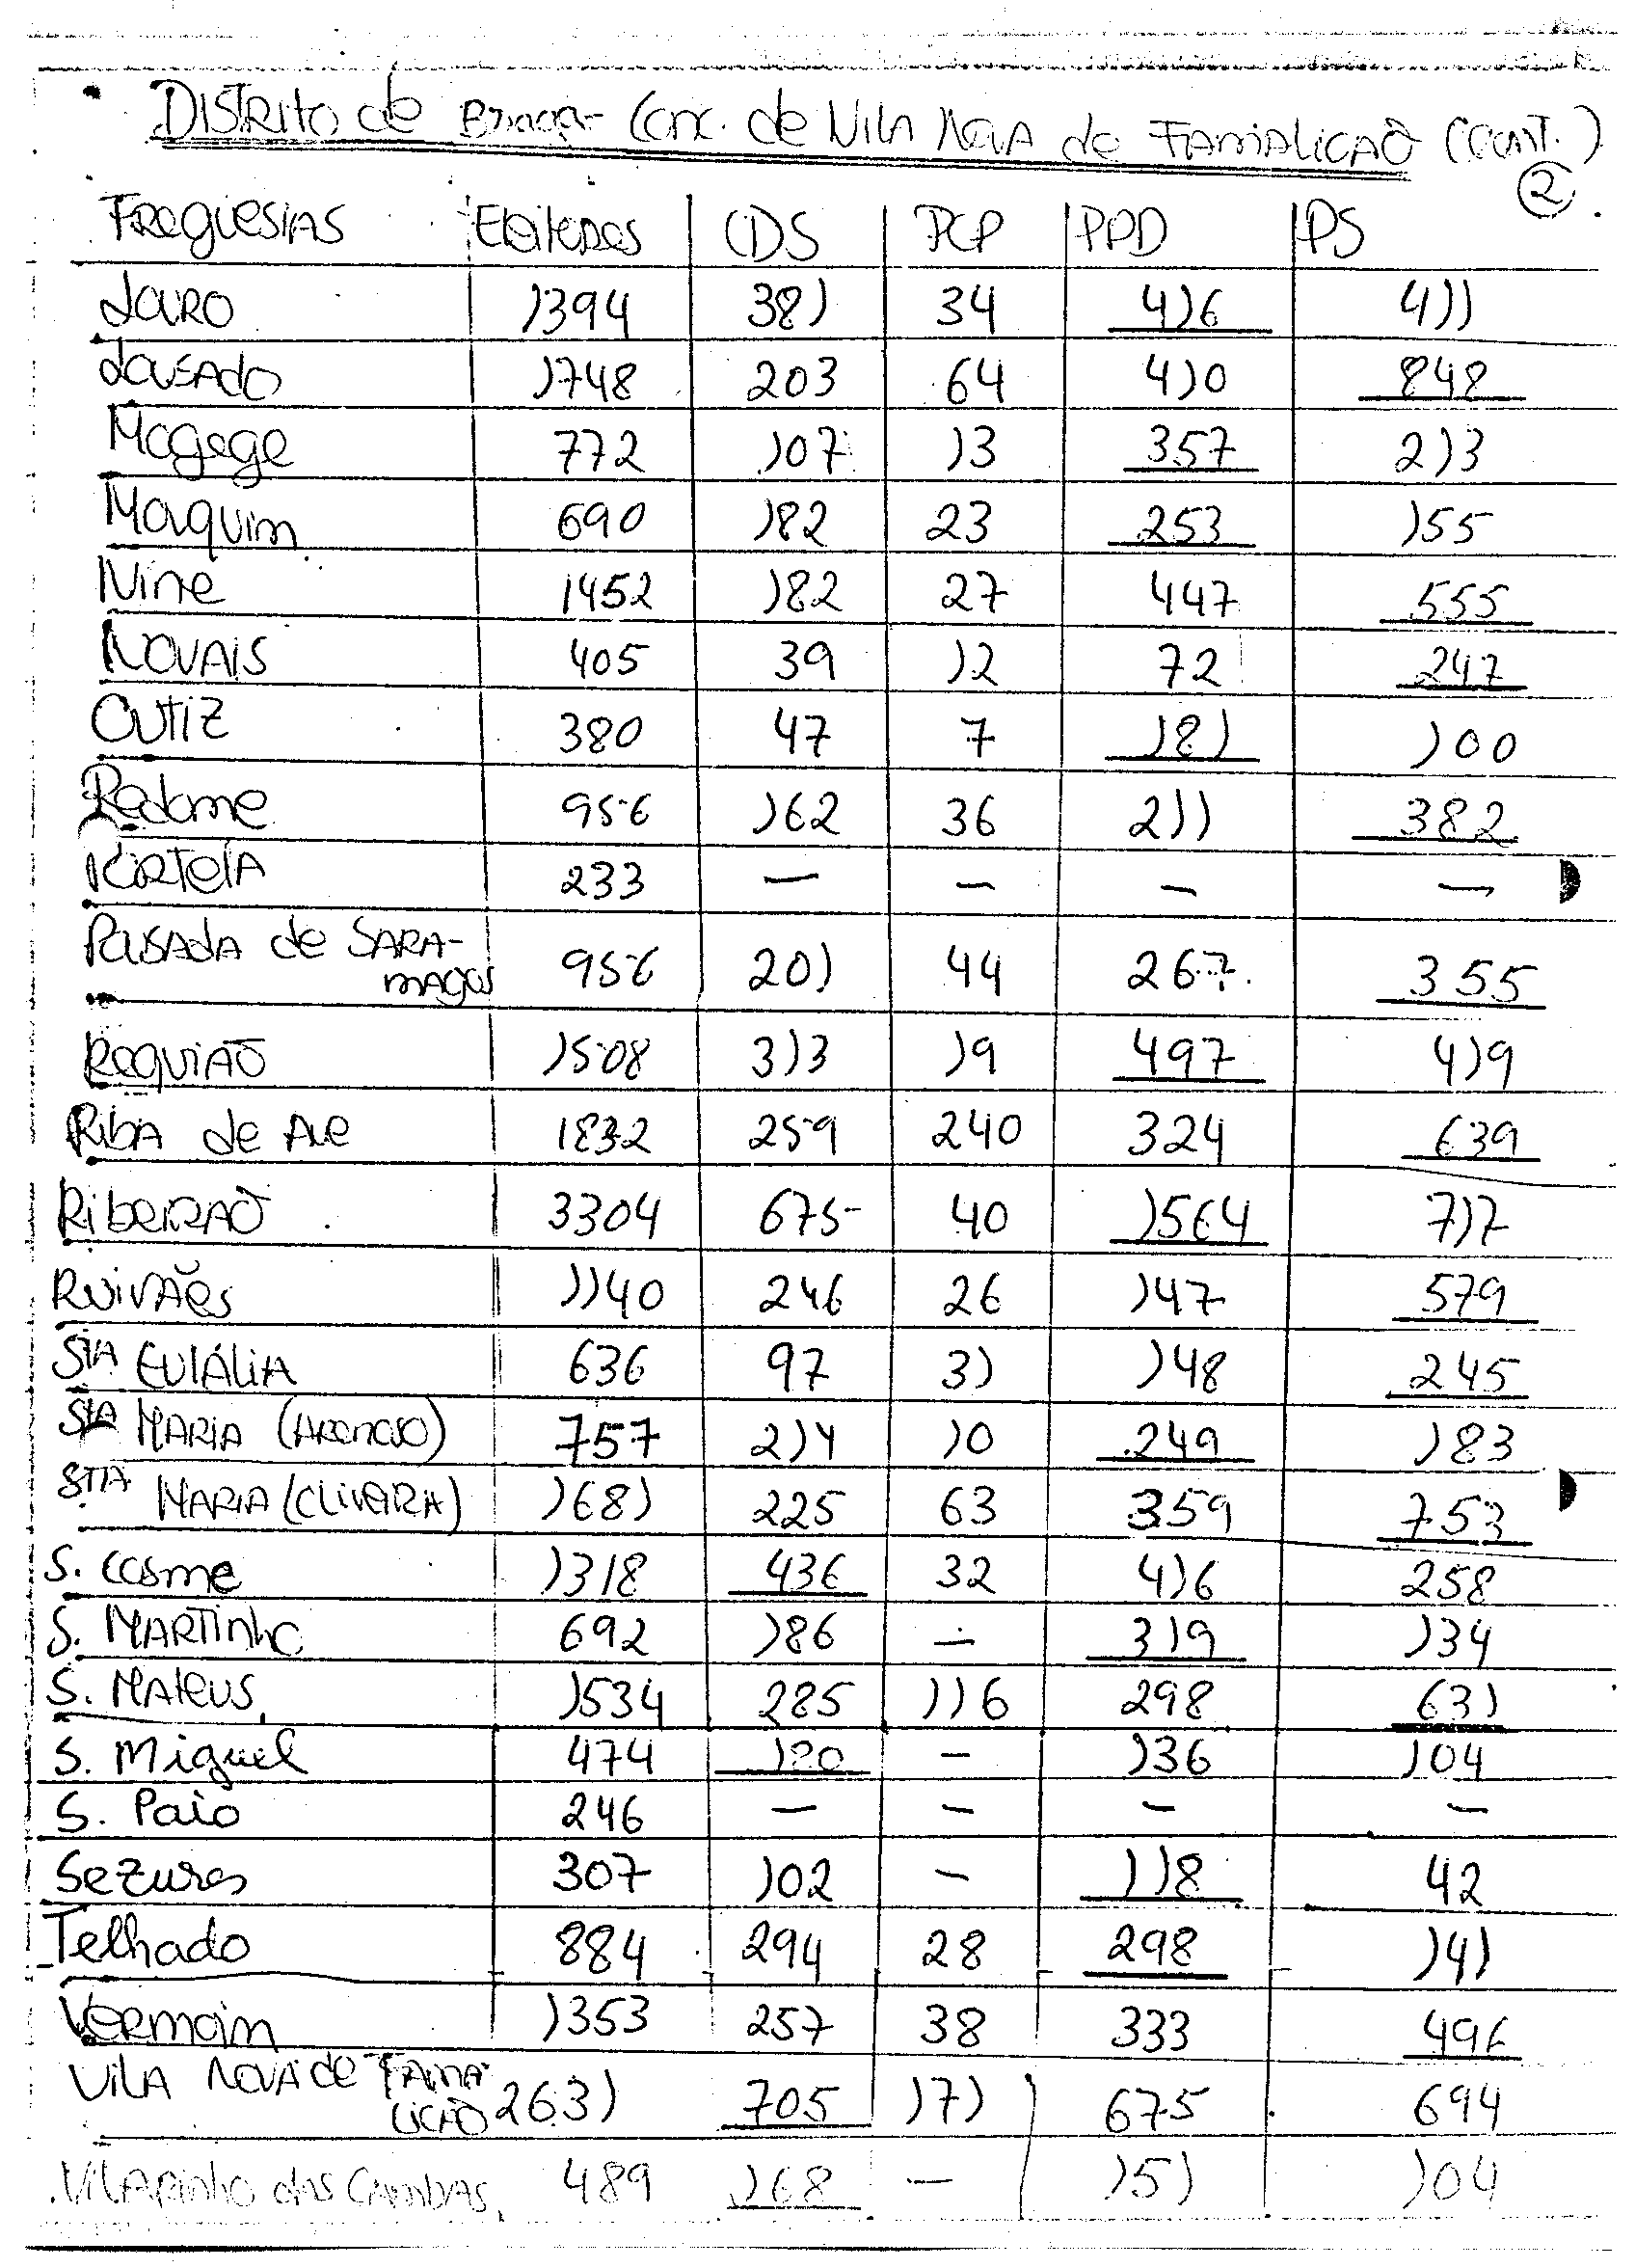 Distrito de Braga - Conc. de Vila Nova de Famalicão (cont.)
2
Freguesias Eleitores CDS PCP PPD PS
Louro 1394 381 34 416 411
Lousado 1748 203 64 410 848
Mogege 772 107 13 357 213
Mouquim 690 182 23 253 155
Nine 1452 182 27 447 555
Novais 405 39 12 72 247
Outiz 380 47 7 181 100
Pedome 956 162 36 211 382
Portela 233 — — — —
Pousada de Sara-
magos 956 201 44 267 355
Requião 1508 313 19 497 419
Riba de Ave 1832 259 240 324 639
Ribeirão 3304 675 40 1564 717
Ruivães 1140 246 26 147 579
Sta Eulália 636 97 31 148 245
Sta Maria (Arnoso) 757 214 10 249 183
Sta Maria (Oliveira) 1681 225 63 359 753
S. Cosme 1318 436 32 416 258
S. Martinho 692 186 — 319 134
S. Mateus 1534 285 116 298 631
S. Miguel 474 — 136 104
S. Paio 246 — — — —
Sezures 307 102 — 118 42
Telhado 884 294 28 298 141
Vermoim 1353 257 38 333 496
Vila Nova de Fama-
licão 2631 705 171 675 694
Vilarinho das Cambas 489 168 — 151 104